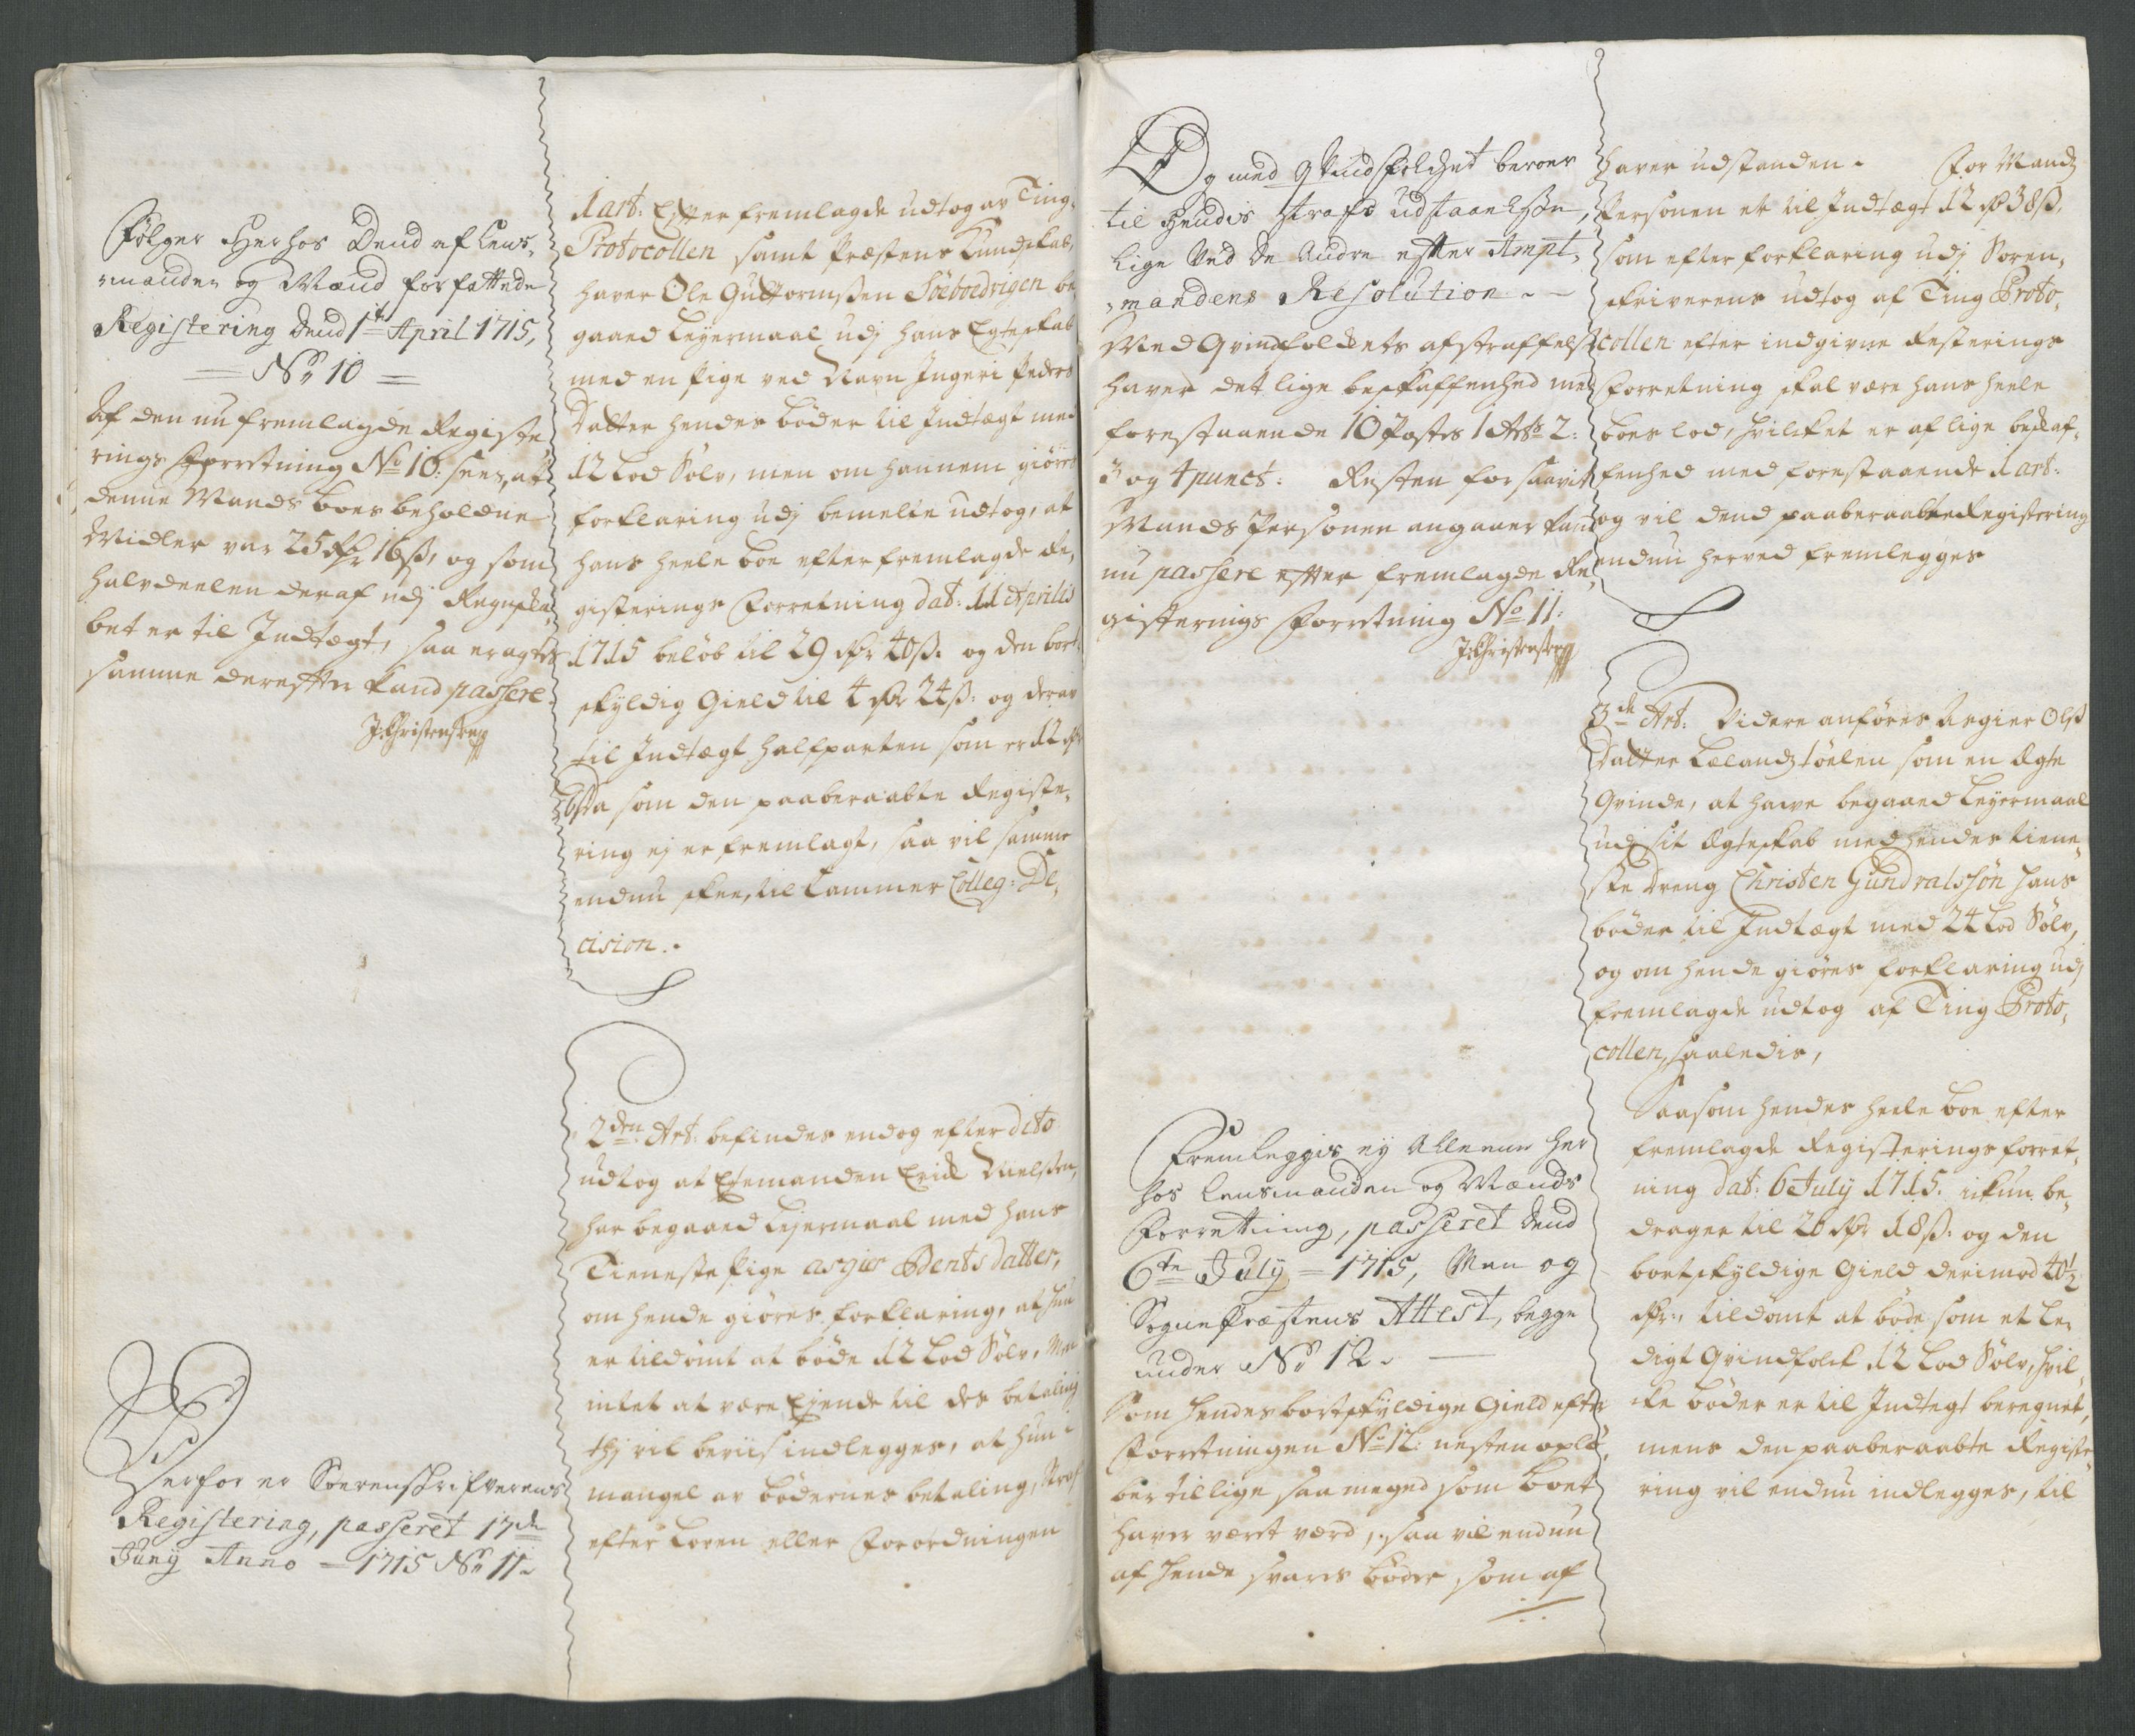 Følger Herhos Dend af Lens-
manden og Mænd forfattede
Registering dend 1te April 1715,
No 10
Af den nu fremlagde Registe
rings Forretning No 10: sees, at
denne Mands boes beholdne
Midler var 25 rdr 16 ß, og som
halvdeelen deraf udj Regnska
bet er til Indtægt, saa eragtes
samme derefter kand passere.
J: Christensen
Herfor er Sorenskrifverens
Registering, passeret 17de
Junij Anno 1715 No 11.
1 art: Efter fremlagde udtog av Ting-
Protocollen samt Præstens kundskab,
haver Ole Guttormsen Söeboedvigen be-
gaaed Leyermaal udj hans Egteskab
med en Pige ved Navn Ingeri Peders
Datter hendes böder til Indtægt med
12 Lod Sölv, men om hannem giöres
forklaring udj bemelte udtog, at
hans heele boe efter fremlagde Re-
gisterings Forretning dat: 11 Aprilis
1715 belöb til 29 rdr 40 ß. og den bort-
skyldig Gield til 4 rdr 24 ß: og derav
til Indtægt halfparten som er 12 rdr
Da som den paaberaabte Registe-
ring ej er fremlagt, saa vil samme
endnu skee, til Cammer Colleg: De-
cision.
2den Art: befindes endog efter dito
udtog at Ejemanden Erick Nielsen,
har begaaed Lejermaal med hans
Tieneste Pige asgier Bentsdatter,
om hende giöres forklaring, at hun
er tildömt at böde 12 Lod Sölv, Men
intet at være Ejende til des betaling
thj vil beviis indlegges, at hun i
mangel av bödernes betaling, straf
efter Loven eller Forordningen
Og med qvindfolchet beroer
til hendis straf udstaaelsse,
lige ved de andre efter Ampt-
mandens Resolution.
Med Qvindfolckets afstraffelse
haver det lige beskaffenhed med
forestaaende 10 Postes 1 Arts 2:
3 og 4 punct: Resten for saavit
Mands Personen angaaer kand
nu passere efter fremlagde Re-
gisterings Forretning No 11:
J: Christensen
Fremleggis ej alleene her
hos Lensmanden og Mænds
Forretning, passeret dend
6te July 1715, Men og
Sognepræstens Attest, begge
under No 12.
Som hendes bortskyldige Gield efter
Forretningen No 12: nesten oplö
ber til lige saa meget som boet
haver været værd, saa vil endnu
af hende svares böder, som af
haver udstanden. For Mands
Personen er til Indtægt 12 rdr 38 ß.
som efter forklaring udj Soren-
skriverens udtog af Ting Proto-
collen efter indgivne Resterings
forretning skal være hans heele
boes lod, hvilket er af lige beskaf-
fenhed med forestaaende 1 art:
og vil dend paaberaabte Registering
endnu herved fremlegges
3de Art: Videre anföres Asgier Ols
Datter Lælandstöelen som en Egte
Qvinde, at have begaaed Leyermaal
udj sit Egteskab med hendes tiene-
ste dreng Christen Gundralssön hans
böder til Indtægt med 24 Lod Sölv,
og om hende giöres forklaring udj
fremlagde udtog af Ting Proto-
collen, saaledis,
Saasom hendes heele boe efter
fremlagde Registerings forret-
ning dat: 6 July 1715. ikun be-
drager til 26 rdr 18 ß. og den
bortskyldige Gield derimod 40½
rdr, tildömt at böde som et le-
digt Qvindfolk 12 Lod Sölv, hvil-
ke böder er til Indtegt beregnet,
mens den paaberaabte Registe-
ring vil endnu indlegges, til